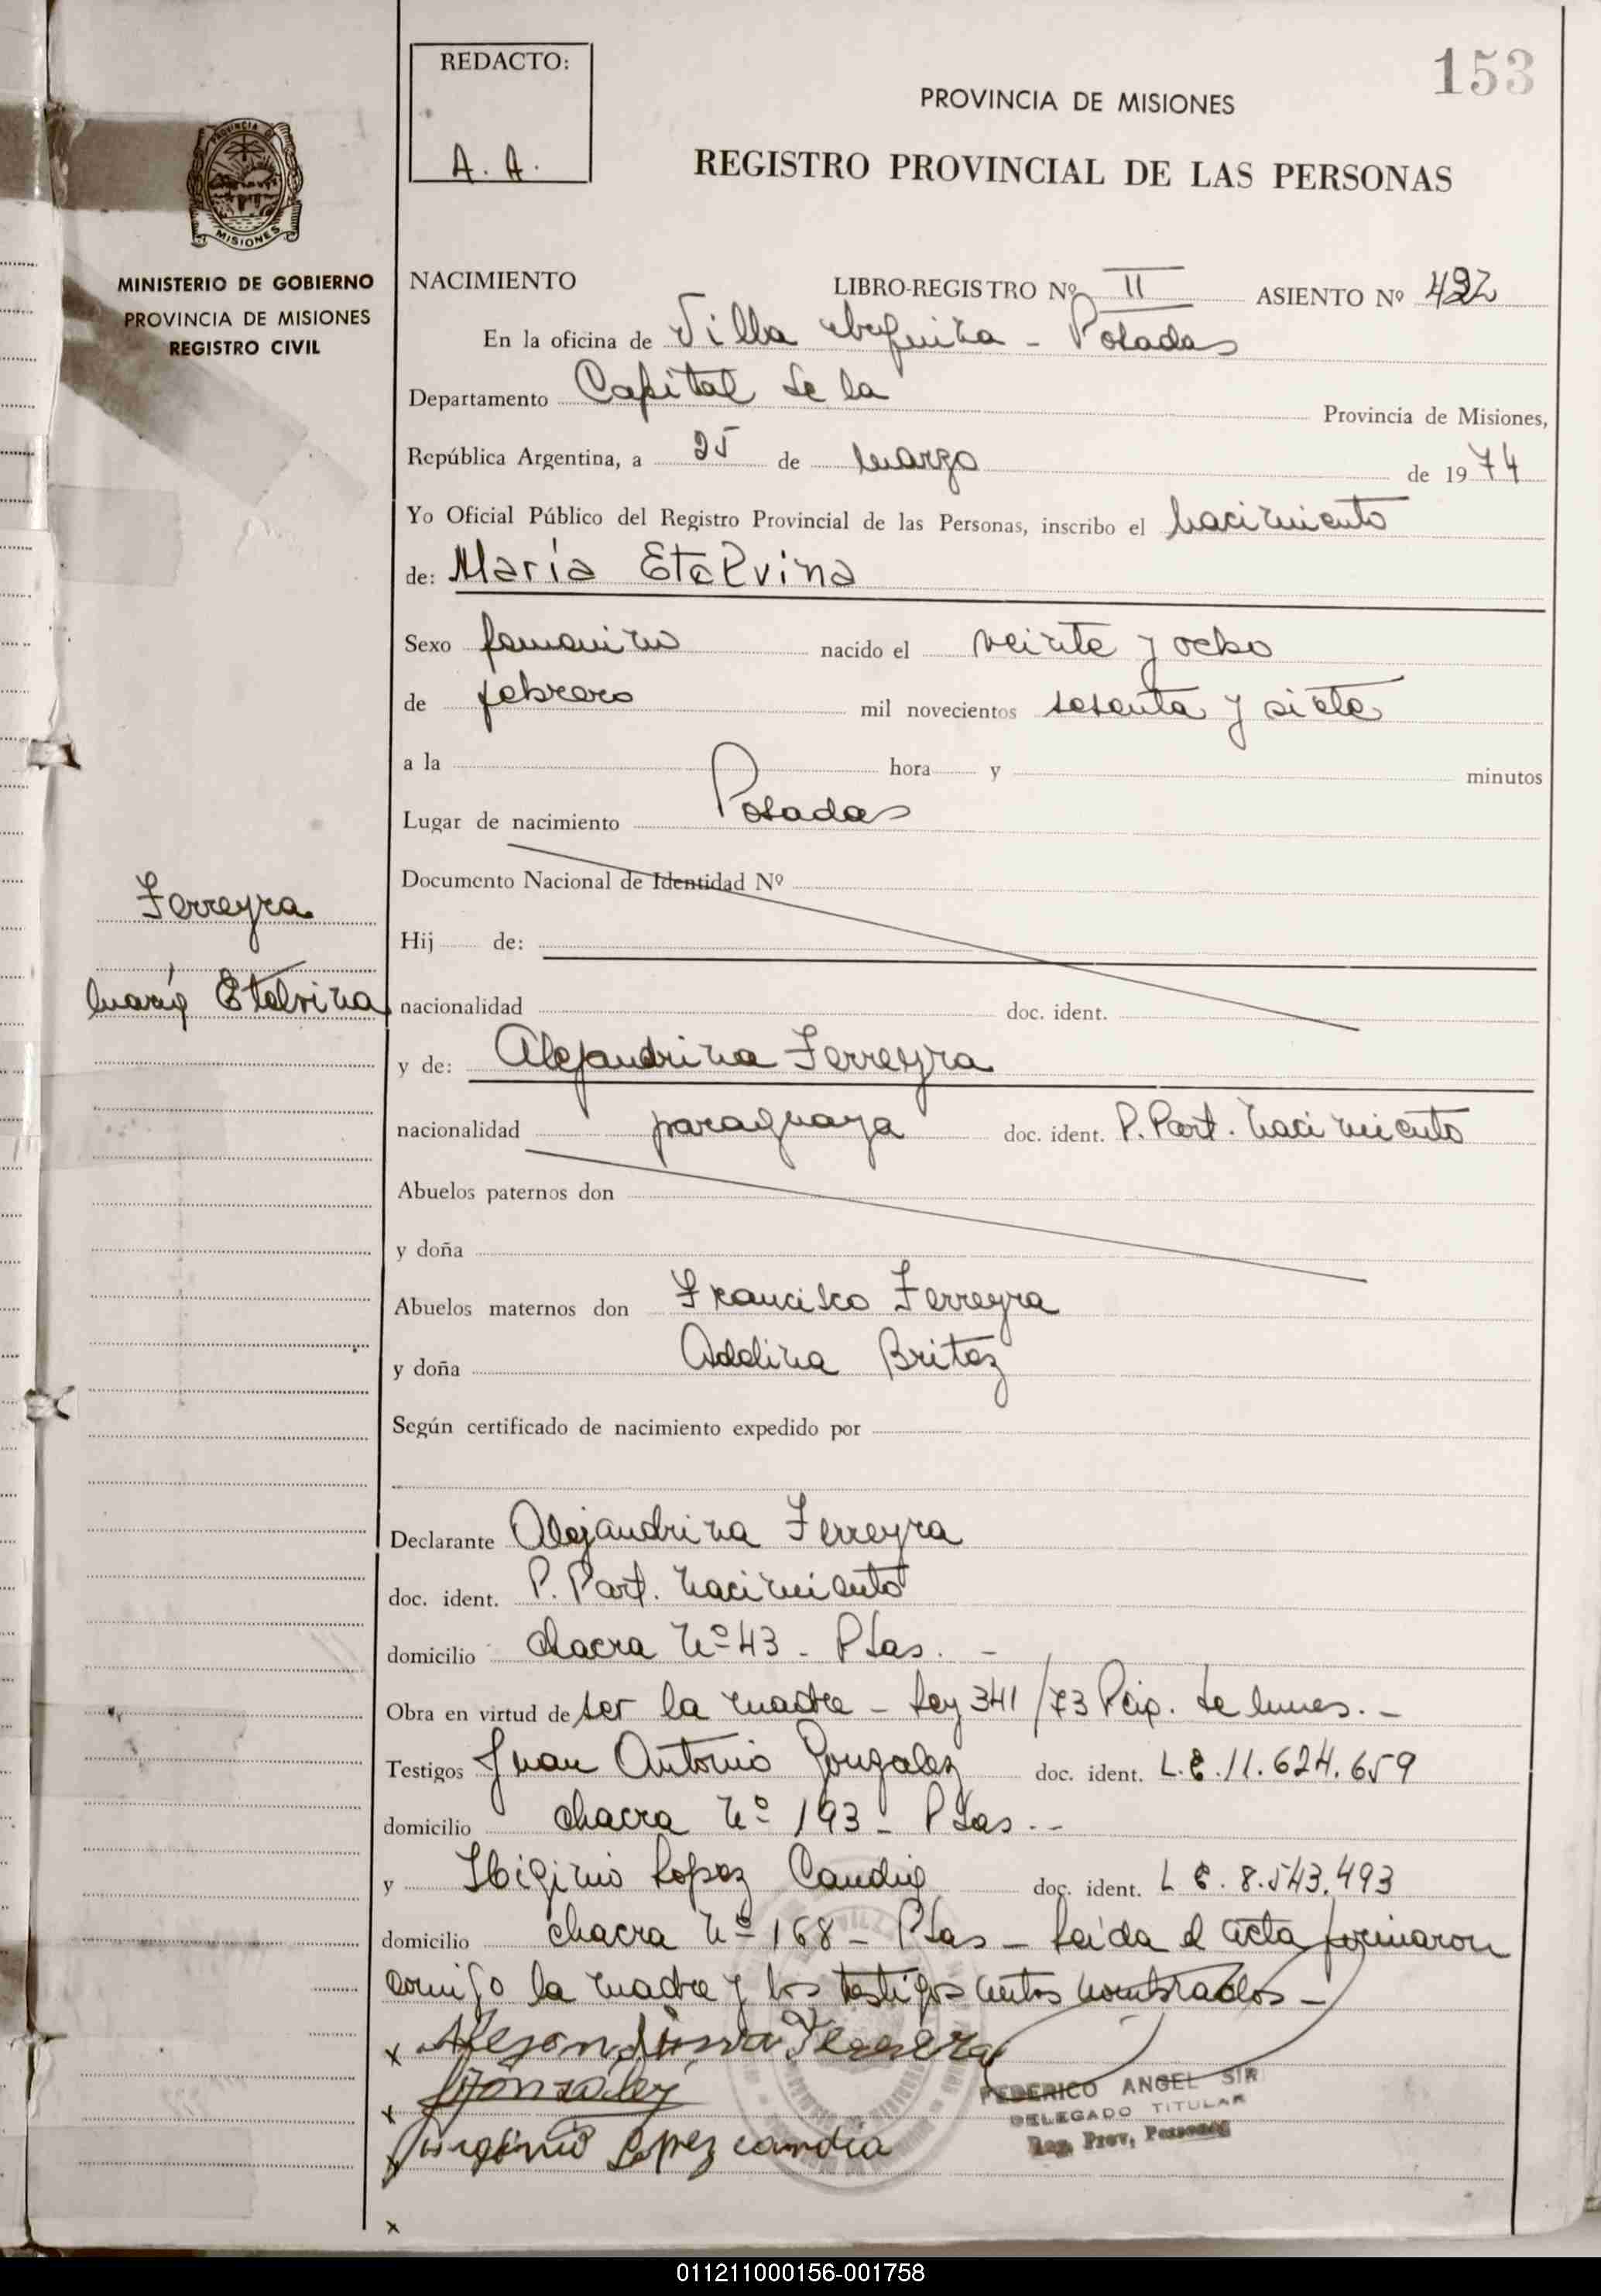 REDACTO:
A. A.
153
PROVINCIA DE MISIONES
REGISTRO PROVINCIAL DE LAS PERSONAS
PROVINCIA DE
MISIONES
MINISTERIO DE GOBIERNO
PROVINCIA DE MISIONES
REGISTRO CIVIL
NACIMIENTO LIBRO-REGISTRO Nº II ASIENTO Nº 492
En la oficina de Villa Urquiza - Posadas
Departamento Capital de la Provincia de Misiones,
República Argentina, a 25 de marzo de 1974
Yo Oficial Público del Registro Provincial de las Personas, inscribo el nacimiento
de: María Etelvina
Sexo femenino nacido el veinte y ocho
de febrero mil novecientos sesenta y siete
a la hora y minutos
Lugar de nacimiento Posadas
Documento Nacional de Identidad Nº
Ferreyra
Hij de:
María Etelvina
nacionalidad doc. ident.
y de: Alejandrina Ferreyra
nacionalidad paraguaya doc. ident. P. Part. nacimiento
Abuelos paternos don
y doña
Abuelos maternos don Francisco Ferreyra
y doña Adelina Britez
Según certificado de nacimiento expedido por
Declarante Alejandrina Ferreyra
doc. ident. P. Part. nacimiento
domicilio chacra Nº 43 - Pdas. -
Obra en virtud de ser la madre - Ley 341/73 Pcip. de -
Testigos Juan Antonio Gonzalez doc. ident. L.E. 11.624.659
domicilio chacra Nº 193 - Pdas. -
y Higinio Lopez Candia doc. ident. L E. 8.543.493
domicilio chacra Nº 168 - Pdas - Leída el acta firmaron
conmigo la madre y los testigos antes nombrados -
x Alejandrina Ferreira
x Gonzáley
x Higinio Lopez candia
x
FEDERICO ANGEL SIR
DELEGADO TITULAR
Reg. Prov. Personas
011211000156-001758